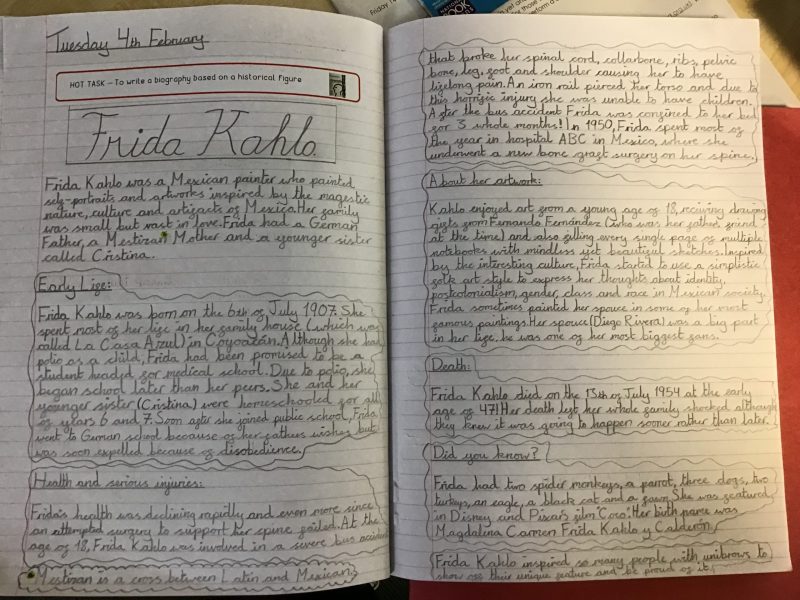 Tuesday 4th February
HOT TASK – To write a biography based on a historical figure
Frida Kahlo.
Frida Kahlo was a Mexican painter who painted
self-portraits and artworks inspired by the magestic
nature, culture and artifacts of Mexico. Her family
was small but vast in love. Frida had a German
Father, a Mestizan Mother and a younger sister
called Cristina.
Early Life:
Frida Kahlo was born on the 6th of July 1907. She
spent most of her life in her family house (which was
called La Casa Azul) in Coyoacán. Although she had
polio as a child, Frida had been promised to be a
student headed for medical school. Due to polio, she
began school later than her peers. She and her
younger sister (Cristina) were homeschooled for all
of years 6 and 7. Soon after she joined public school, Frida
went to German school because of her fathers wishes but
was soon expelled because of disobedience.
Health and serious injuries:
Frida's health was declining rapidly and even more since
an attempted surgery to support her spine failed. At the
age of 18, Frida Kahlo was involved in a severe bus accident
Mestizan is a cross between Latin and Mexican.
that broke her spinal cord, collarbone, ribs, pelvic
bone, leg, foot and shoulder causing her to have
lifelong pain. An iron rail pierced her torso and due to
this horrific injury she was unable to have children.
After the bus accident Frida was confined to her bed
for 3 whole months! In 1950, Frida spent most of
the year in hospital ABC in Mexico, where she
underwent a new bone graft surgery on her spine.
About her artwork:
Kahlo enjoyed art from a young age of 18, reciving drawing
gifts from Fernando Fernández (who was her father, friend
at the time) and also filling every single page of multiple
notebooks with mindless yet beautiful sketches. Inspired
by the interesting culture, Frida started to use a simplistic
folk art style to express her thoughts about identity,
postcolonialism, gender, class and race in Mexican society.
Frida sometimes painted her spouce in some of her most
famous paintings. Her spouce (Diego Rivera) was a big part
in her life. he was one of her most biggest fans.
Death:
Frida Kahlo died on the 13th of July 1954 at the early
age of 47! Her death left her whole family shocked although
they knew it was going to happen sooner rather than later.
Did you know?
Frida had two spider monkeys, a parrot, three dogs, two
turkeys, an eagle, a black cat and a fawn. She was featured
in Disney and Pixar's film 'Coco'. Her birth name was
Magdalena Carmen Frida Kahlo y Calderón.
Frida Kahlo inspired so many people with unibrows to
show off their unique feature and be proud of it!